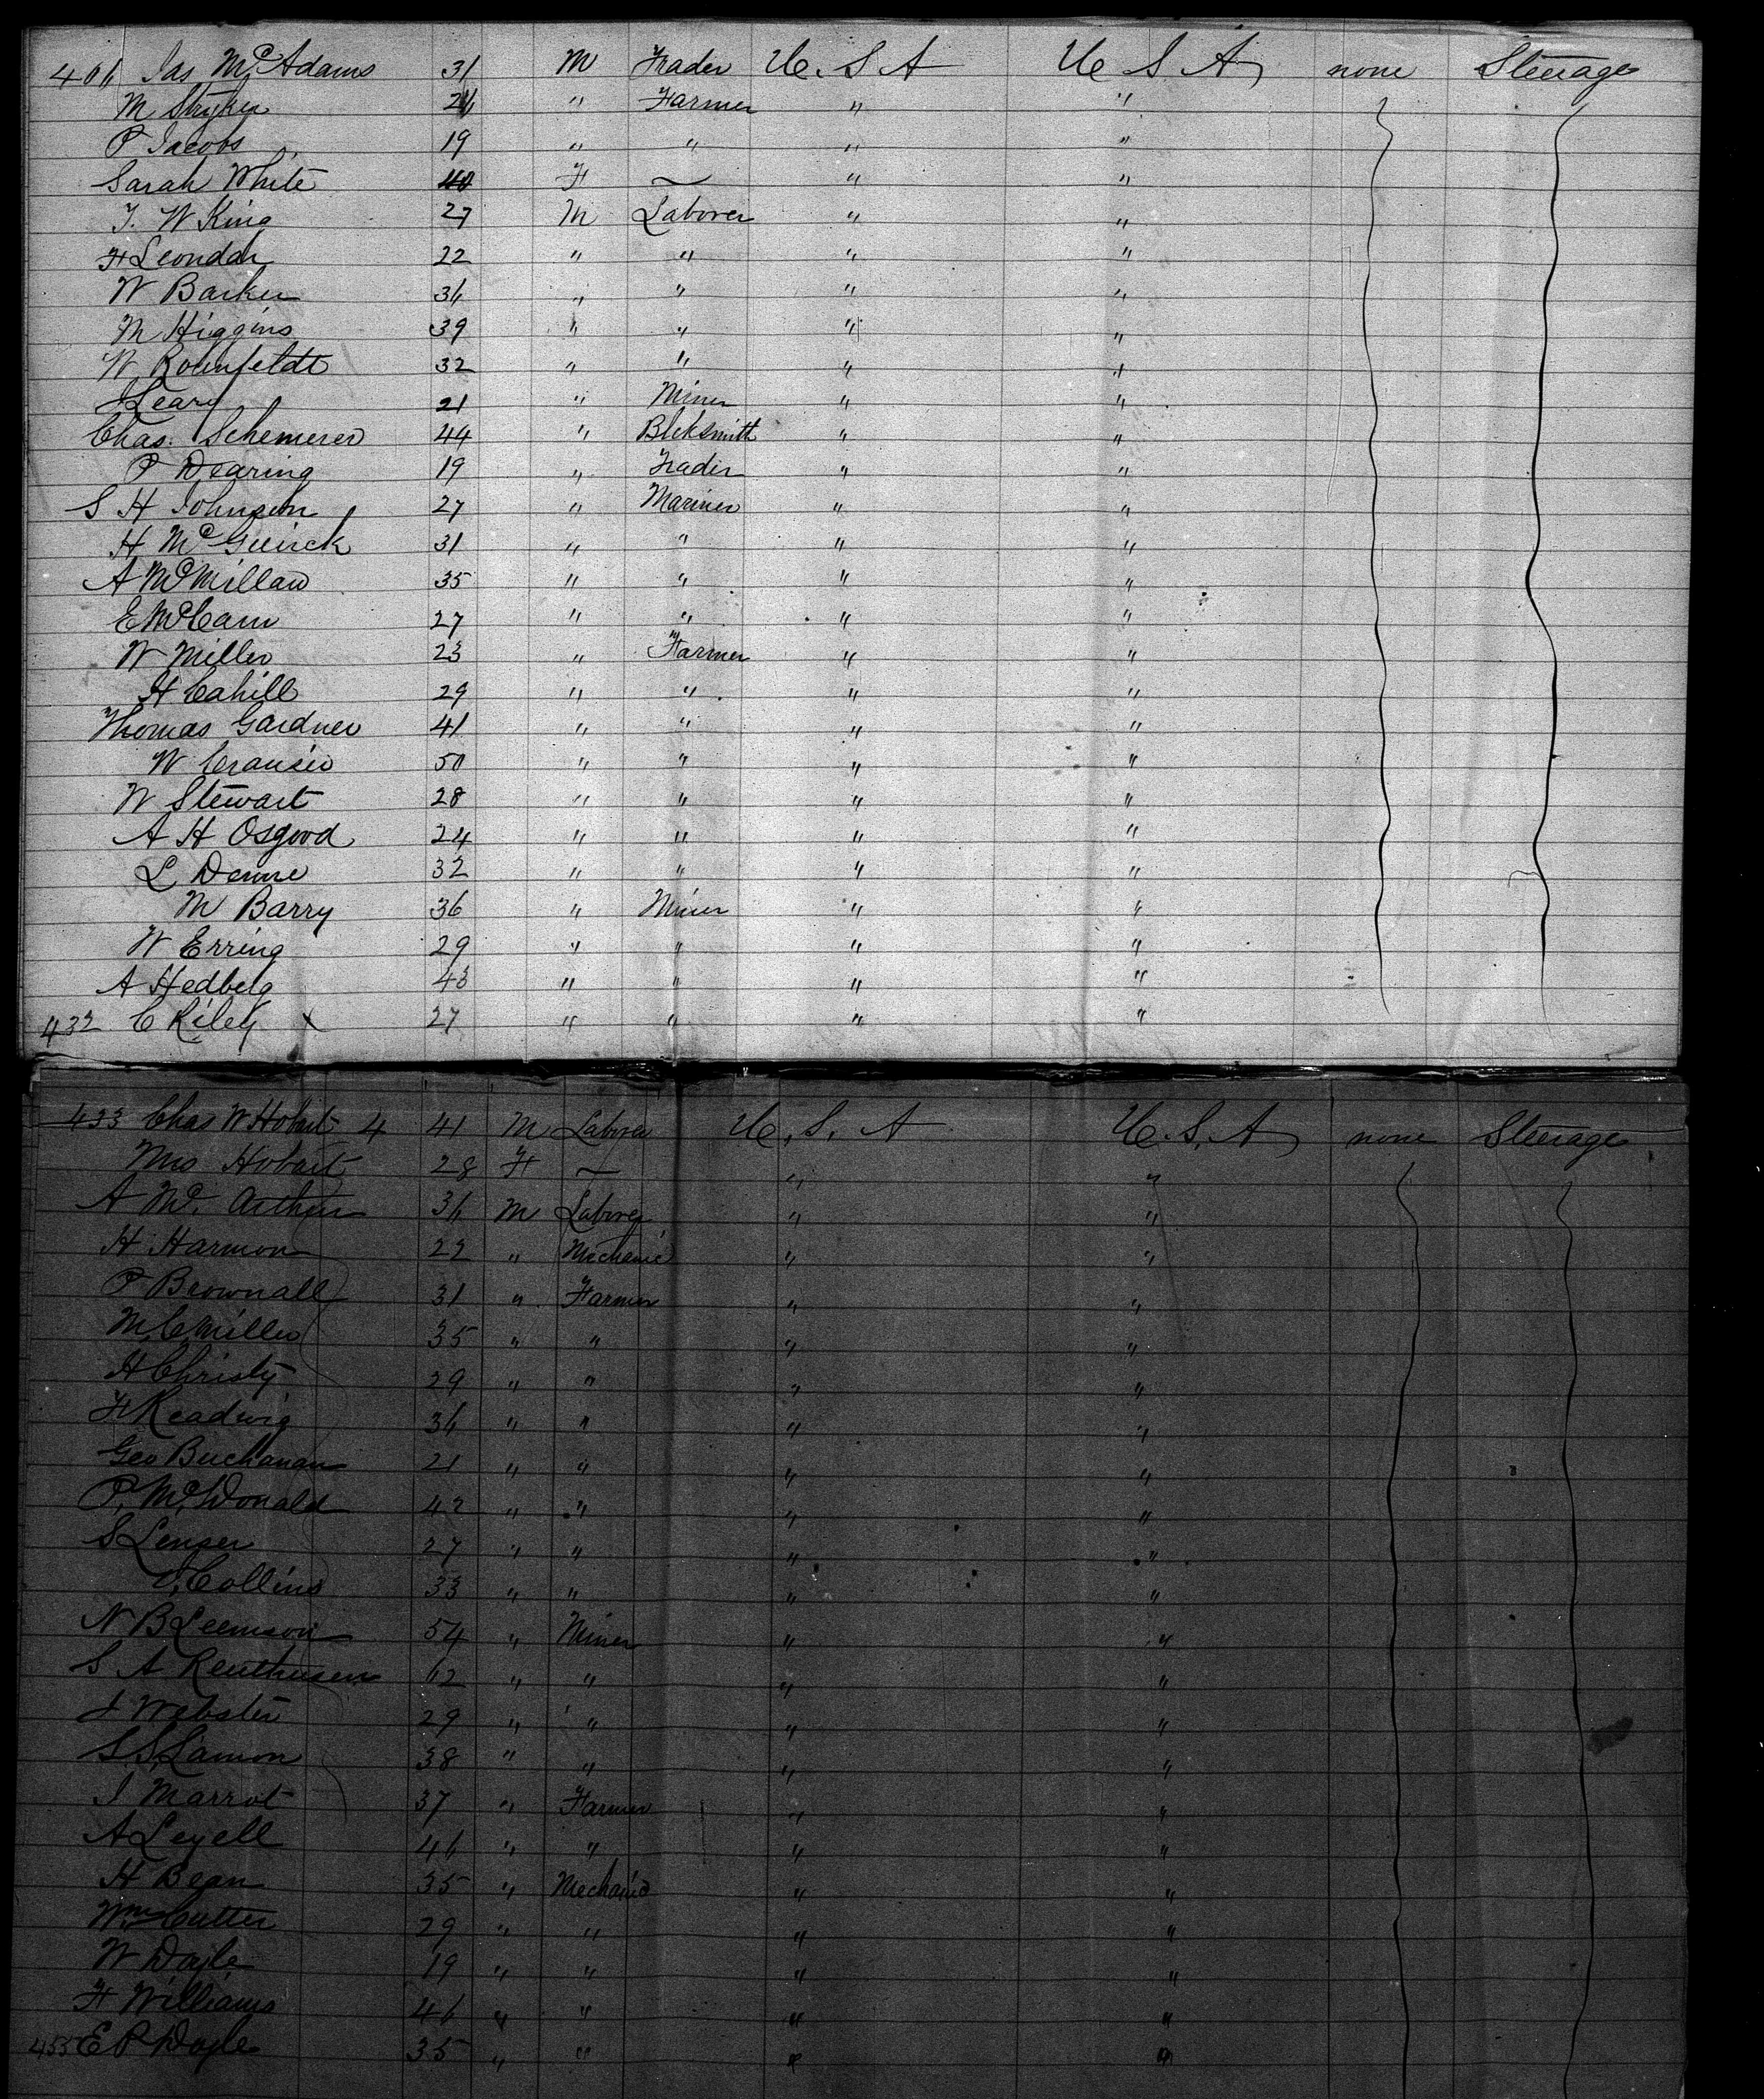 406 Jas McAdams 31 M Trader U. S A U S A none Steerage
M Stryker 26 " Farmer " "
P Jacobs 19 " " " "
Sarah White 40 F — " "
T. W King 27 M Laborer " "
F Leondar 22 " " " "
W Barker 36 " " " "
M Higgins 39 " " " "
W Rohnfeldt 32 " " " "
J Leary 21 " Miner " "
Chas. Schemerer 44 " Blcksmith " "
P Dearing 19 " Trader " "
S H Johnson 27 " Mariner " "
H McGuirck 31 " " " "
A McMillan 35 " " " "
E McCann 27 " " " "
W Miller 23 " Farmer " "
H Cahill 29 " " " "
Thomas Gardner 41 " " " "
W 50 " " " "
W Stewart 28 " " " "
A H Osgood 24 " " " "
L Denne 32 " " " "
M Barry 36 " Miner " "
W Erring 29 " " " "
A Hedbelg 43 " " " "
432 C Riley x 27 " " " "
433 Chas W Hobart 4 41 M Laborer U. S. A U. S. A none Steerage
Mrs Hobart 28 F — " "
A Mc. Arthur 36 M Laborer " "
H Harmon 22 " Mechanic " "
P Brownall 31 " Farmer " "
M. C. Miller 35 " " " "
H Christy 29 " " " "
F Readwig 36 " " " "
Geo Buchanan 21 " " " "
P. McDonald 42 " " " "
S Lenser 27 " " " "
Collins 33 " " " "
N B Leemson 54 " Miner " "
S A 62 " " " "
J Webster 29 " " " "
S. S. Lamon 38 " " " "
J Marrot 37 " Farmer " "
A Leyell 46 " " " "
H Bean 35 " Mechanic " "
Wm Cutter 29 " " " "
W Doyle 19 " " " "
F Williams 46 " " " "
455 E P Doyle 35 " " " "